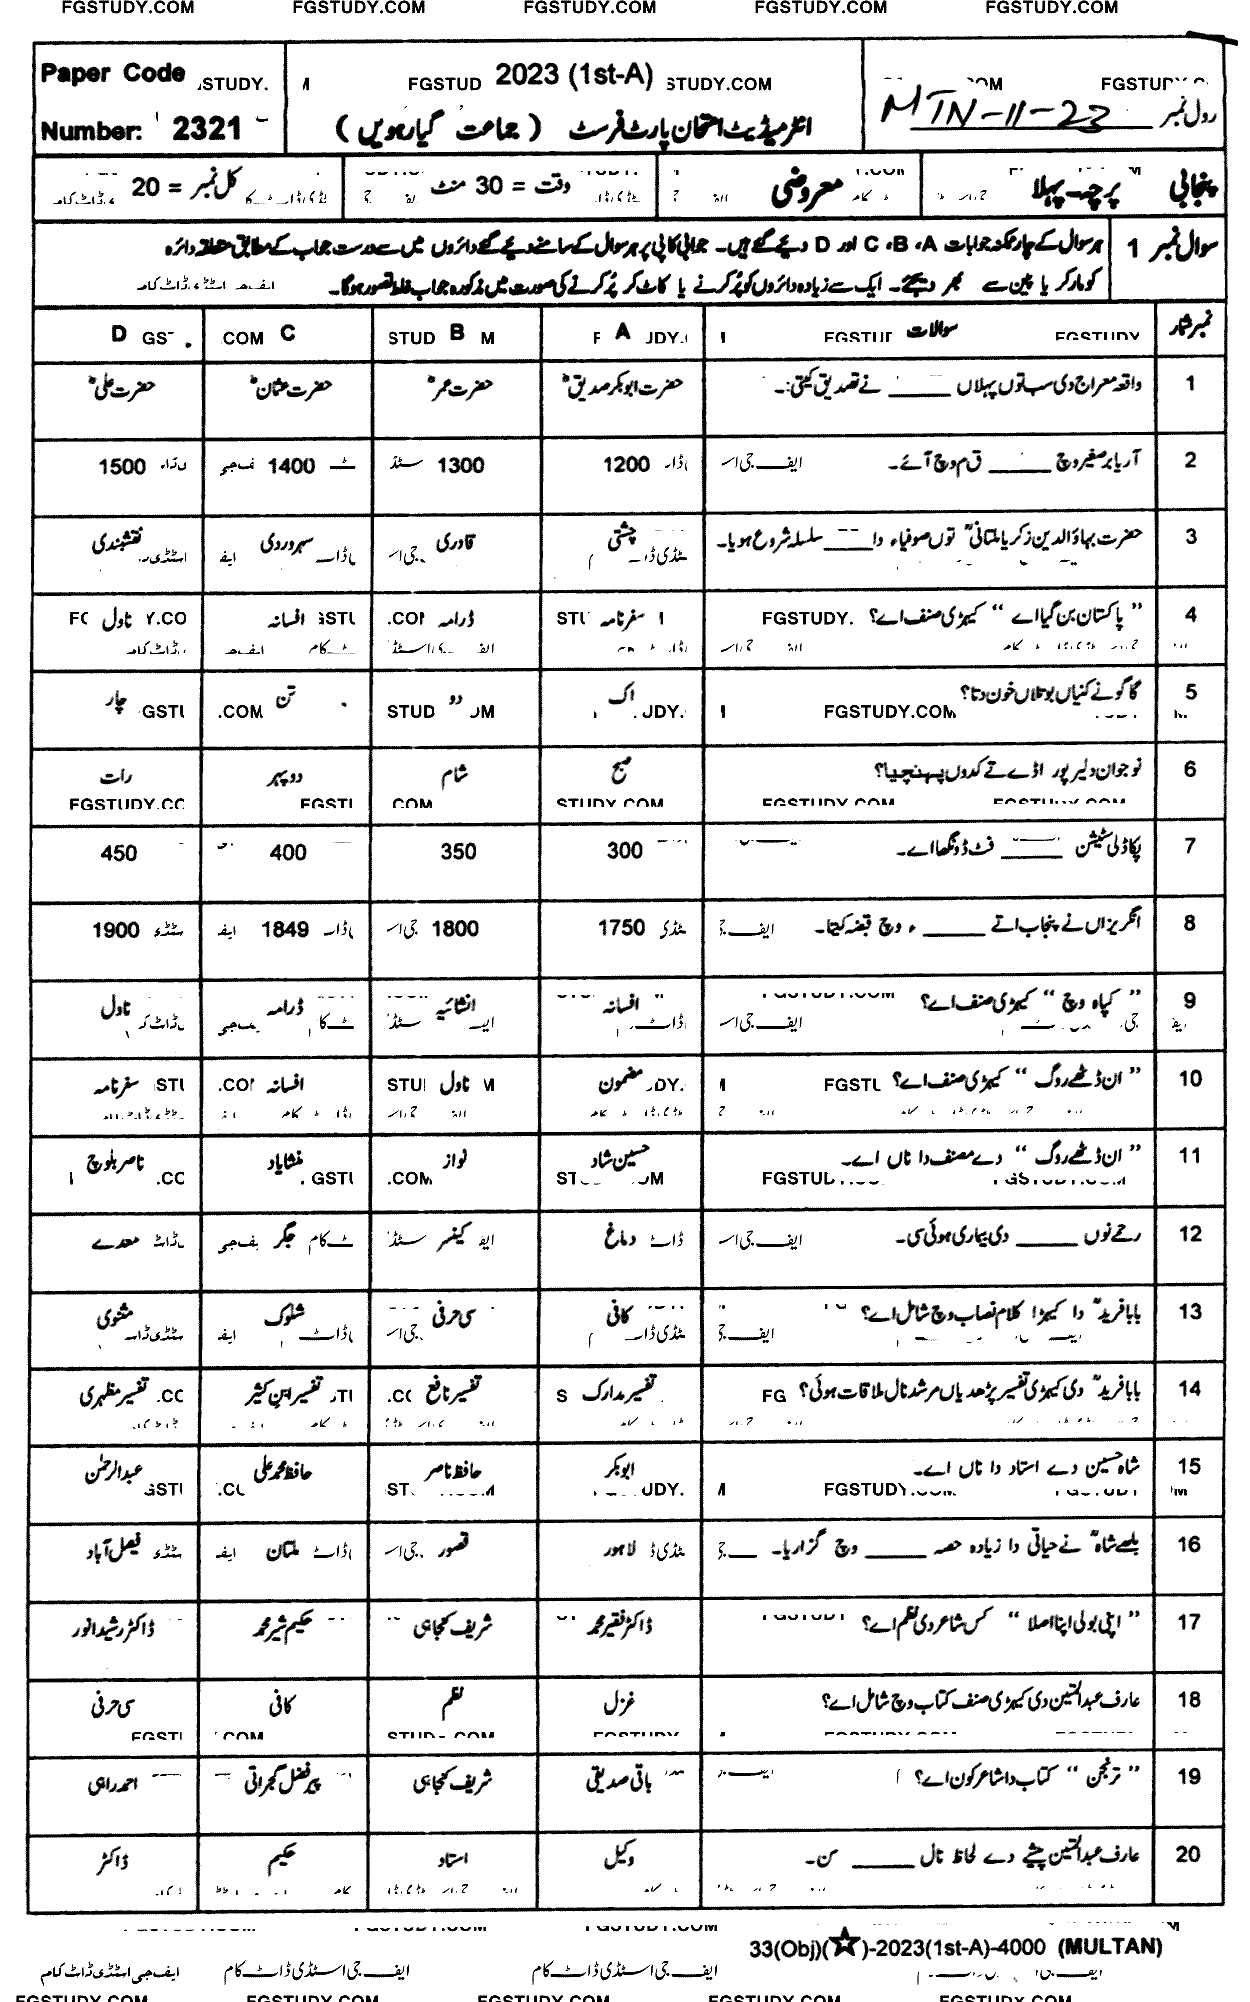 FGSTUDY.COM FGSTUDY.COM FGSTUDY.COM FGSTUDY.COM FGSTUDY.COM
Paper Code 2023 (1st-A) MTN-11-23 رول نمبر
Number: 2321 انٹرمیڈیٹ امتحان پارٹ فرسٹ ( جماعت گیارہویں )
پنجابی پرچہ۔ پہلا معروضی وقت = 30 منٹ کل نمبر = 20
سوال نمبر 1 ہر سوال کے چار ممکنہ جوابات A، B، C اور D دیئے گئے ہیں۔ جوابی کاپی پر ہر سوال کے سامنے دیئے گئے دائروں میں سے درست جواب کے مطابق متعلقہ دائرہ
کو مارکر یا پین سے بھر دیجئے۔ ایک سے زیادہ دائروں کو پُر کرنے یا کاٹ کر پُر کرنے کی صورت میں مذکورہ جواب غلط تصور ہوگا۔
نمبر شمار سوالات A B C D
1 واقعہ معراج دی سب توں پہلاں ____ نے تصدیق کیتی:۔ حضرت ابوبکر صدیقؓ حضرت عمرؓ حضرت عثمانؓ حضرت علیؓ
2 آریا برصغیر وچ ____ ق م وچ آئے۔ 1200 1300 1400 1500
3 حضرت بہاؤالدین زکریا ملتانیؒ توں صوفیاء دا ____ سلسلہ شروع ہویا۔ چشتی قادری سہروردی نقشبندی
4 " پاکستان بن گیا اے " کیہڑی صنف اے؟ سفرنامہ ڈرامہ افسانہ ناول
5 گاگو نے کنیاں بوتلاں خون دتا؟ اک دو تن چار
6 نوجوان دلیر پور اڈے تے کدوں پہنچیا؟ صبح شام دوپہر رات
7 پکاڈلی سٹیشن ____ فٹ ڈونگھا اے۔ 300 350 400 450
8 انگریزاں نے پنجاب اتے ____ ء وچ قبضہ کیتا۔ 1750 1800 1849 1900
9 " کپاہ وچ " کیہڑی صنف اے؟ افسانہ انشائیہ ڈرامہ ناول
10 " ان ڈٹھے روگ " کیہڑی صنف اے؟ مضمون ناول افسانہ سفرنامہ
11 " ان ڈٹھے روگ " دے مصنف دا ناں اے۔ حسین شاد نواز منشایاد ناصر بلوچ
12 رحمے نوں ____ دی بیماری ہوئی سی۔ دماغ کینسر جگر معدے
13 بابا فریدؒ دا کیہڑا کلام نصاب وچ شامل اے؟ کافی سی حرفی شلوک مثنوی
14 بابا فریدؒ دی کیہڑی تفسیر پڑھدیاں مرشد نال ملاقات ہوئی؟ تفسیر مدارک تفسیر نافع تفسیر ابن کثیر تفسیر مظہری
15 شاہ حسین دے استاد دا ناں اے۔ ابوبکر حافظ ناصر حافظ محمد علی عبدالرحمٰن
16 بلھے شاہؒ نے حیاتی دا زیادہ حصہ ____ وچ گزاریا۔ لاہور قصور ملتان فیصل آباد
17 " اپنی بولی اپنا اصلا " کس شاعر دی نظم اے؟ ڈاکٹر فقیر محمد شریف کنجاہی حکیم شیر محمد ڈاکٹر رشید انور
18 عارف عبدالمتین دی کیہڑی صنف کتاب وچ شامل اے؟ غزل نظم کافی سی حرفی
19 " ترنجن " کتاب دا شاعر کون اے؟ باقی صدیقی شریف کنجاہی پیر فضل گجراتی احمد راہی
20 عارف عبدالمتین پیشے دے لحاظ نال ____ سن۔ وکیل استاد حکیم ڈاکٹر
33(Obj)(☆)-2023(1st-A)-4000 (MULTAN)
ایف جی اسٹڈی ڈاٹ کام ایف جی اسٹڈی ڈاٹ کام ایف جی اسٹڈی ڈاٹ کام
FGSTUDY.COM FGSTUDY.COM FGSTUDY.COM FGSTUDY.COM FGSTUDY.COM